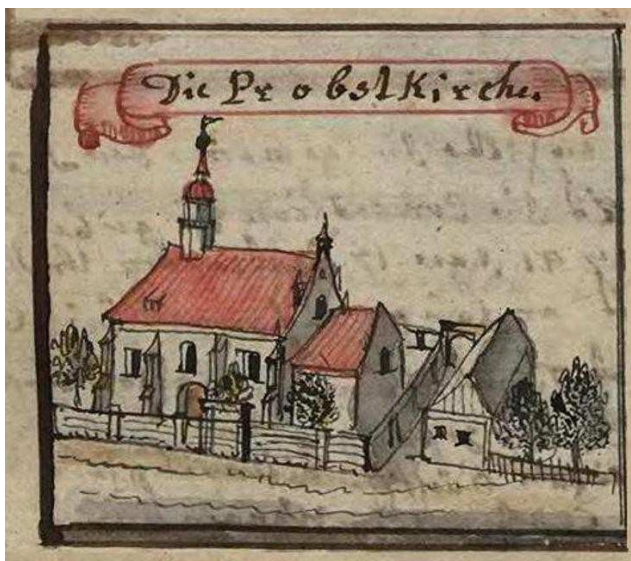 Die Probst Kirche.